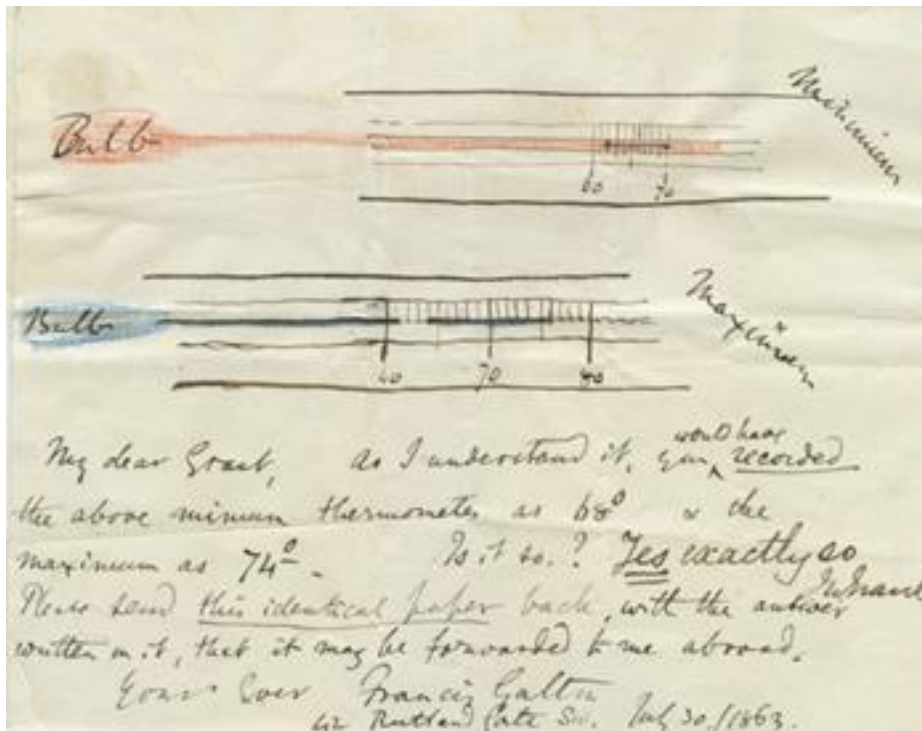 Minimum
Bulb
60 70
Maximum
Bulb
60 70 80
My dear Grant, as I understand it, you would have recorded
the above minimum thermometer as 68° & the
maximum as 74°. Is it so.? Yes exactly so
Please send this identical paper back, with the answer
written on it, that it may be forwarded to me abroad.
Yours ever Francis Galton
42 Rutland Gate S.W. July 30/1863.